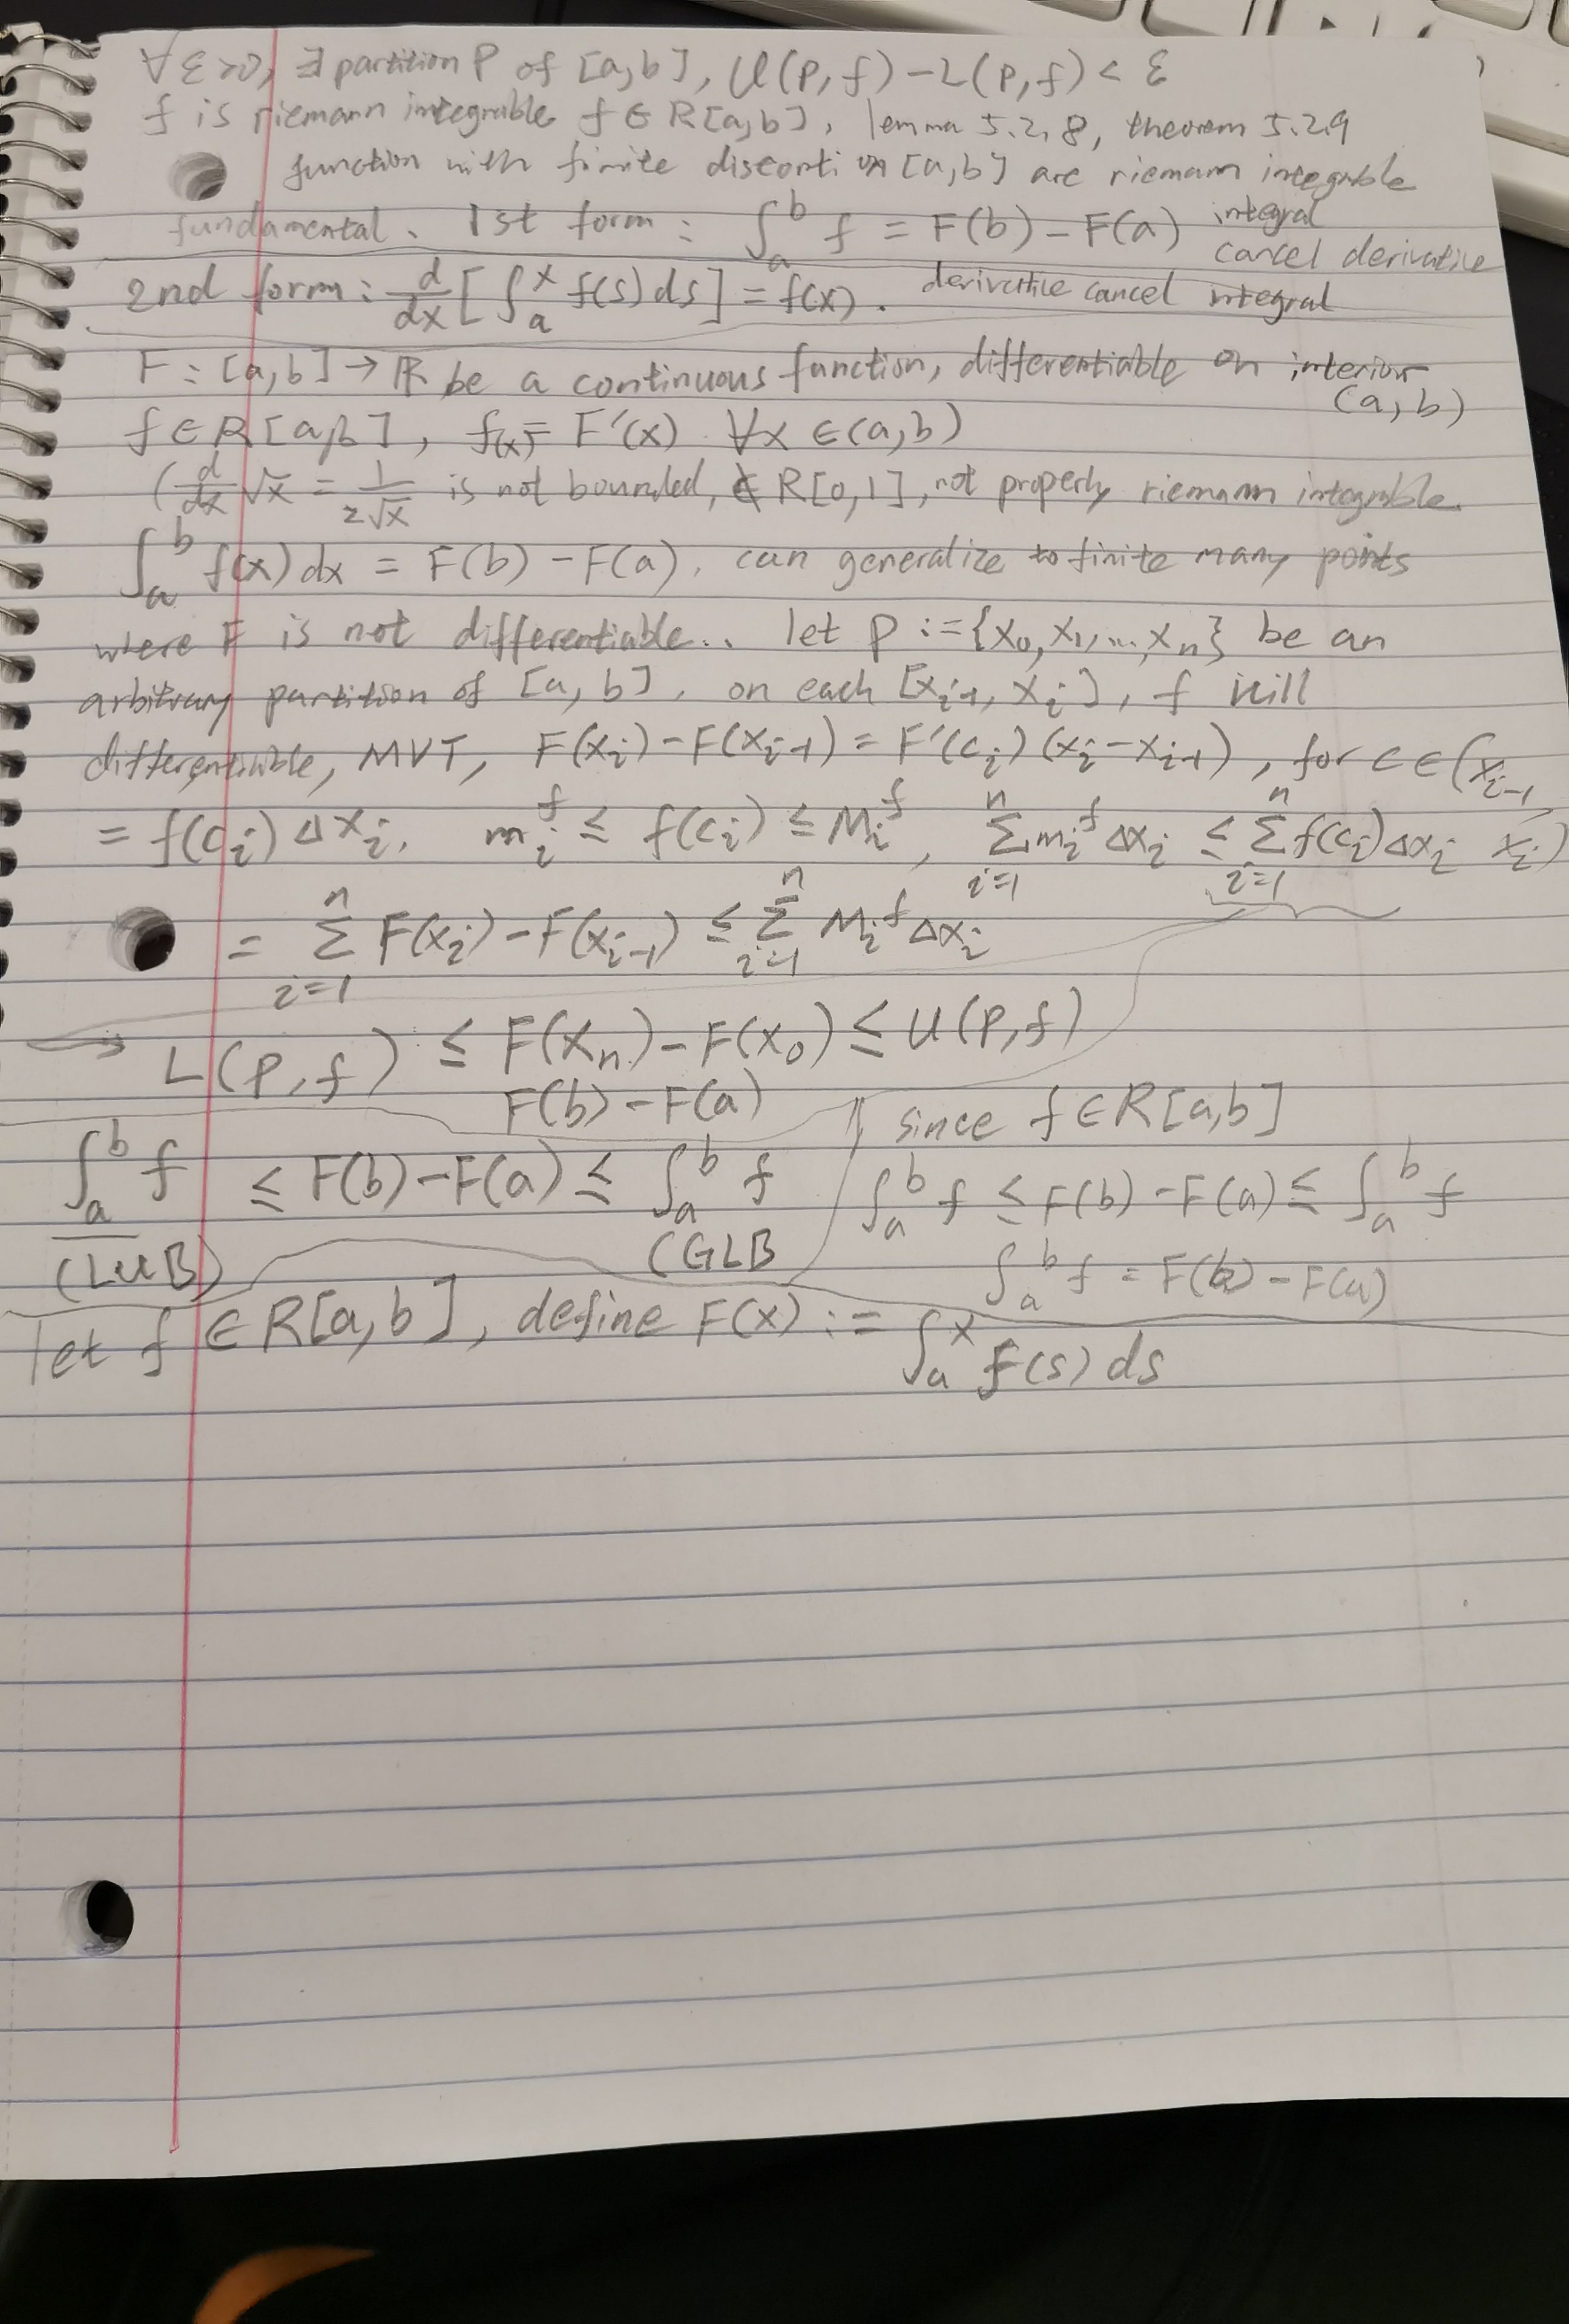 ∀ε>0, ∃ partition P of [a,b], U(P,f)-L(P,f)<ε
f is riemann integrable f∈R[a,b], lemma 5.2.8, theorem 5.2.9
function with finite disconti on [a,b] are riemann integrable
fundamental. 1st form: ∫_a^b f = F(b)-F(a) integral cancel derivative
2nd form: d/dx[∫_a^x f(s)ds] = f(x). derivative cancel integral
F:[a,b]→ℝ be a continuous function, differentiable on interior (a,b)
f∈R[a,b], f(x)=F'(x) ∀x∈(a,b)
(d/dx √x = 1/(2√x) is not bounded, ∉R[0,1], not properly riemann integrable
∫_a^b f(x)dx = F(b)-F(a). can generalize to finite many points
where F is not differentiable.. let P:={x_0,x_1,...,x_n} be an
arbitrary partition of [a,b], on each [x_{i-1},x_i], f
differentiable, MVT, F(x_i)-F(x_{i-1})=F'(c_i)(x_i-x_{i-1}), for c∈(x_{i-1}, x_i)
=f(c_i)Δx_i. m_i^f ≤ f(c_i) ≤ M_i^f, ∑_{i=1}^n m_i^f Δx_i ≤ ∑_{i=1}^n f(c_i)Δx_i
= ∑_{i=1}^n F(x_i)-F(x_{i-1}) ≤ ∑_{i=1}^n M_i^f Δx_i
→ L(P,f) ≤ F(x_n)-F(x_0) ≤ U(P,f)
F(b)-F(a)
∫_a^b f ≤ F(b)-F(a) ≤ ∫_a^b f
(LUB) (GLB
since f∈R[a,b]
∫_a^b f ≤ F(b)-F(a) ≤ ∫_a^b f
∫_a^b f = F(b)-F(a)
let f∈R[a,b], define F(x) := ∫_a^x f(s)ds